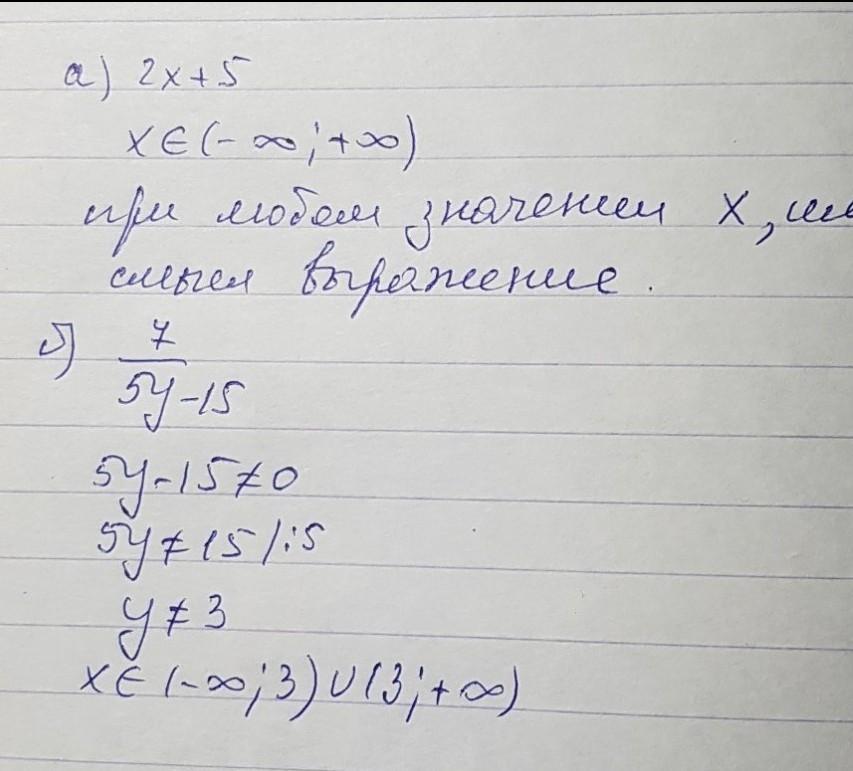 а) 2x+5
x∈(-∞;+∞)
при любом значении x,
смысл выражение.
б) 7
5y-15
5y-15≠0
5y≠15 |:5
y≠3
x∈(-∞;3)∪(3;+∞)